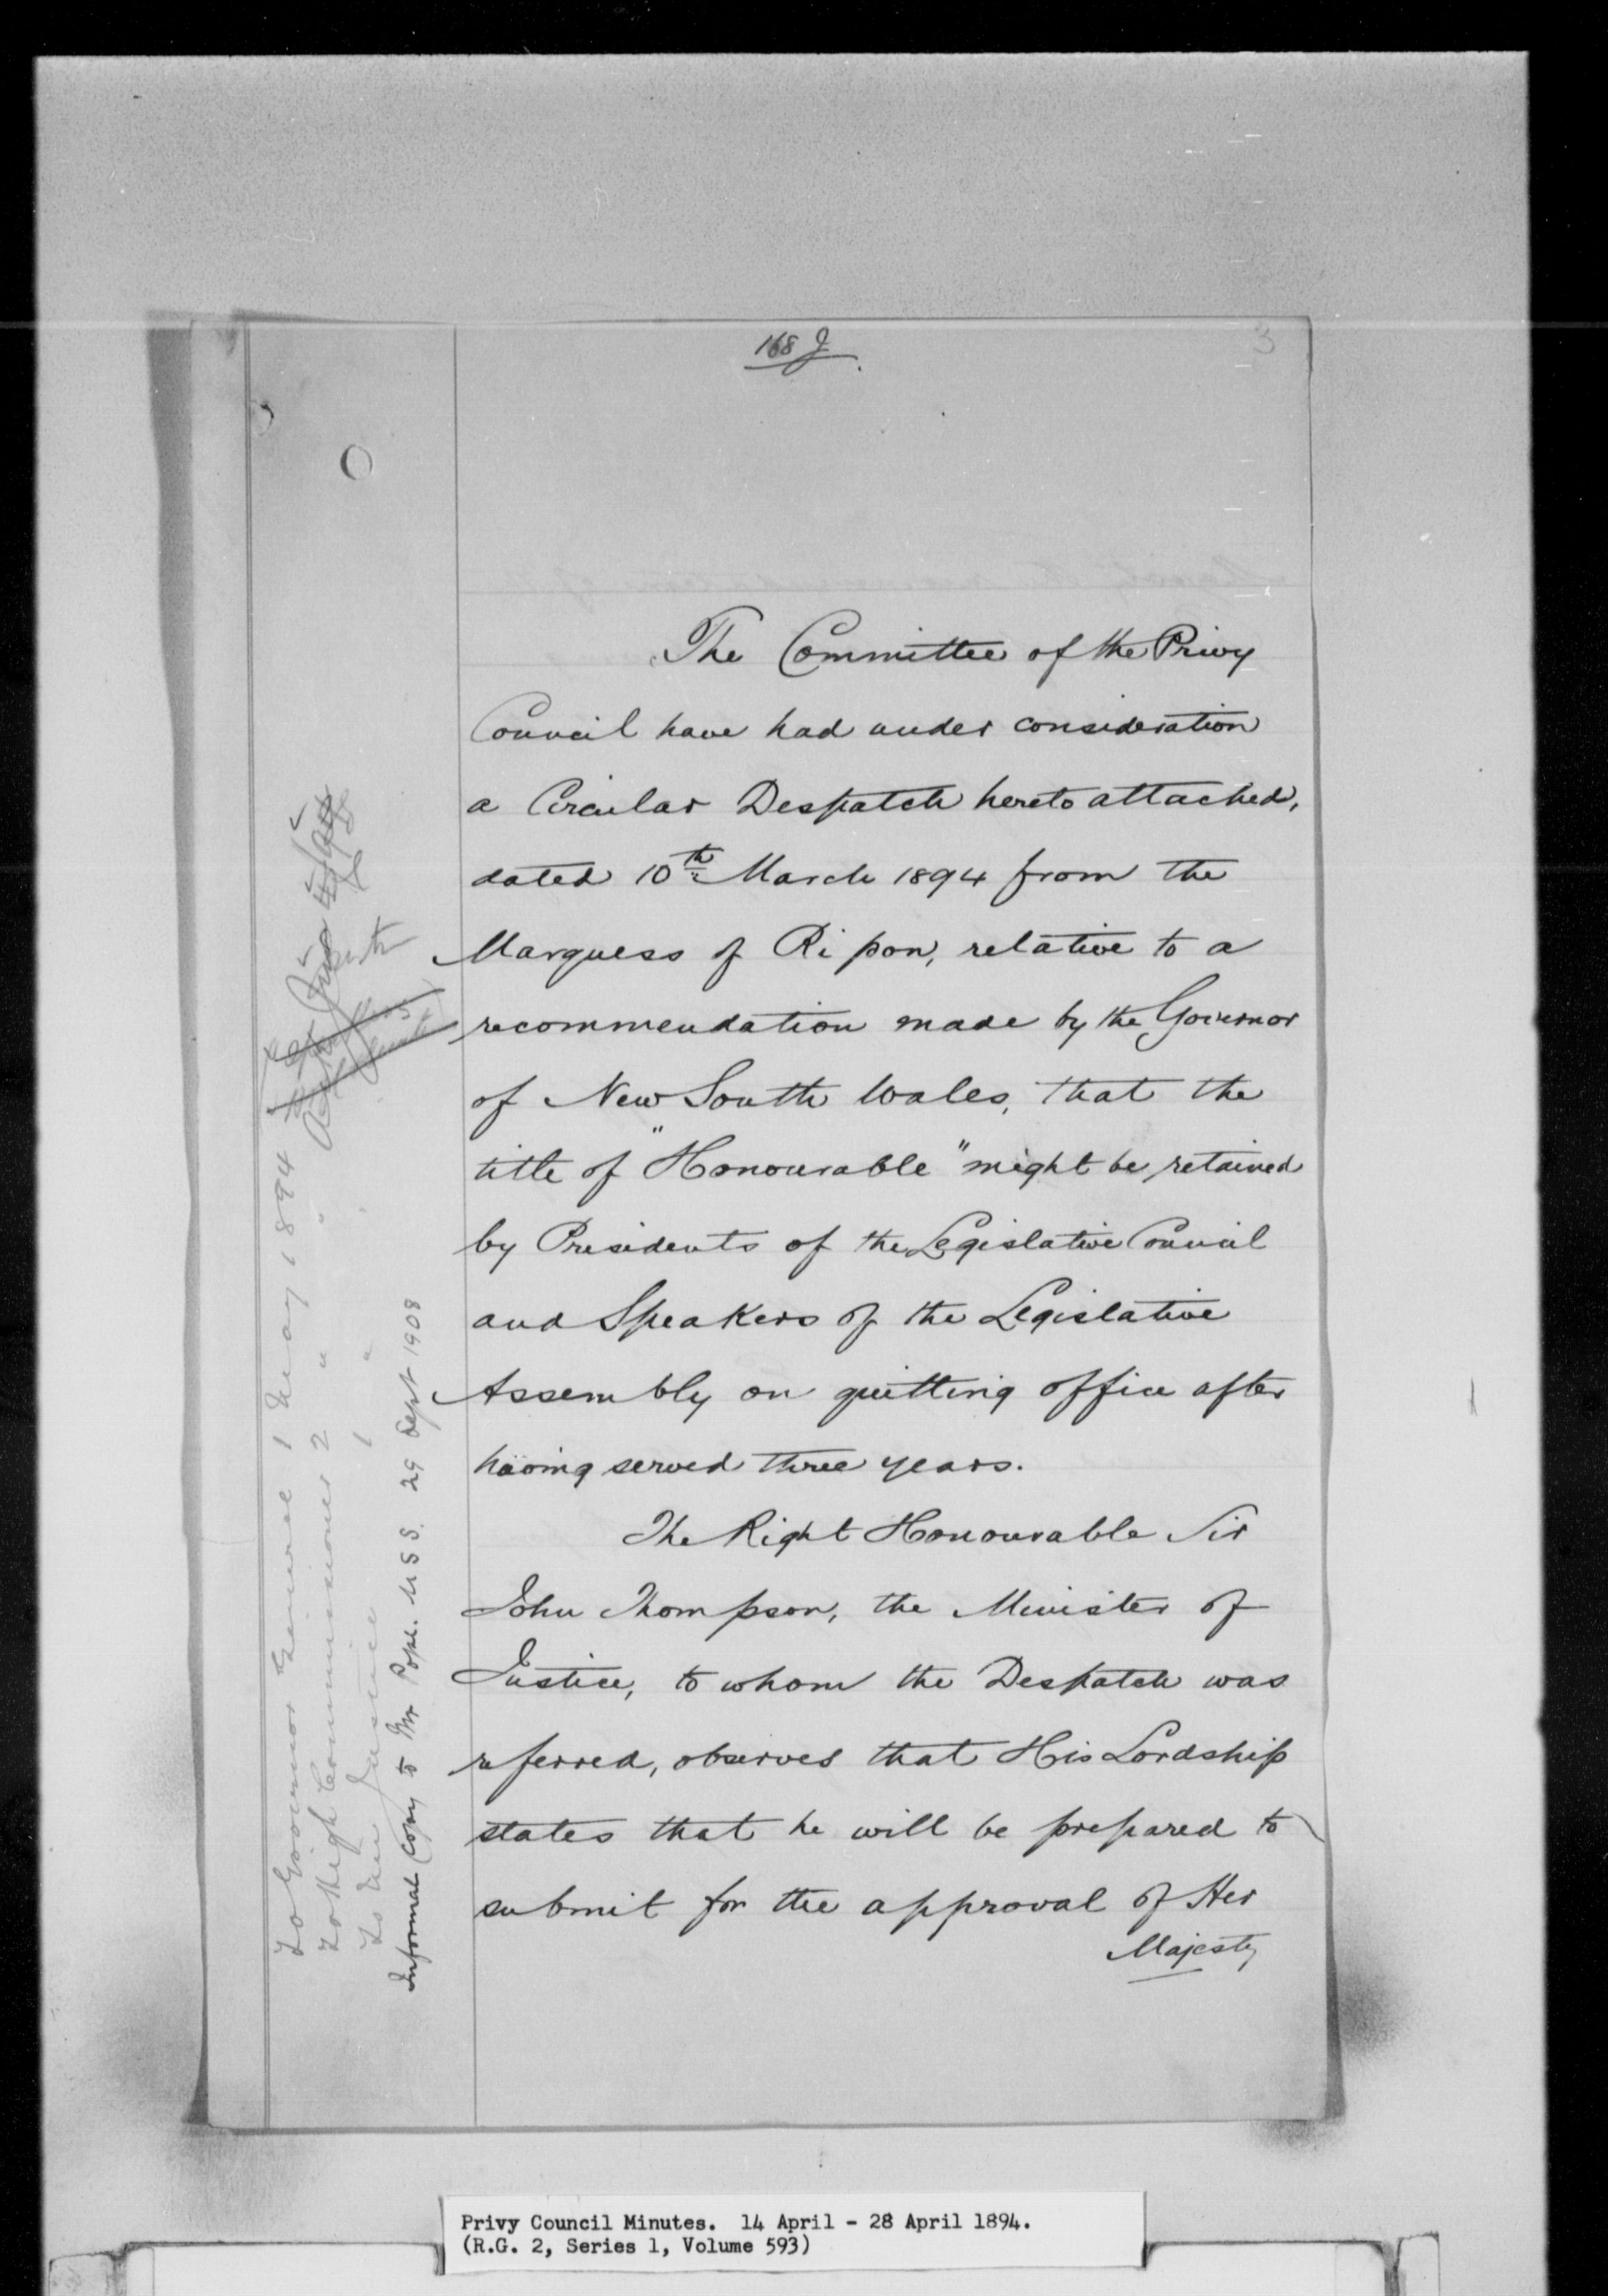 168 J
3
The Committee of the Privy
Council have had under consideration
a Circular Despatch hereto attached,
dated 10th March 1894 from the
Marquess of Ripon, relative to a
recommendation made by the Governor
of New South Wales, that the
title of "Honourable" might be retained
by Presidents of the Legislative Council
and Speakers of the Legislative
Assembly on quitting office after
having served three years.
The Right Honourable Sir
John Thompson, the Minister of
Justice, to whom the Despatch was
referred, observes that His Lordship
states that he will be prepared to
submit for the approval of Her
Majesty
To Governor General 1 May 1894
To High Commissioner 2 " "
To Min Justice 1 "
Informal Copy to Mr Pope. U S S. 29 Sept 1908
Privy Council Minutes. 14 April - 28 April 1894.
(R.G. 2, Series 1, Volume 593)